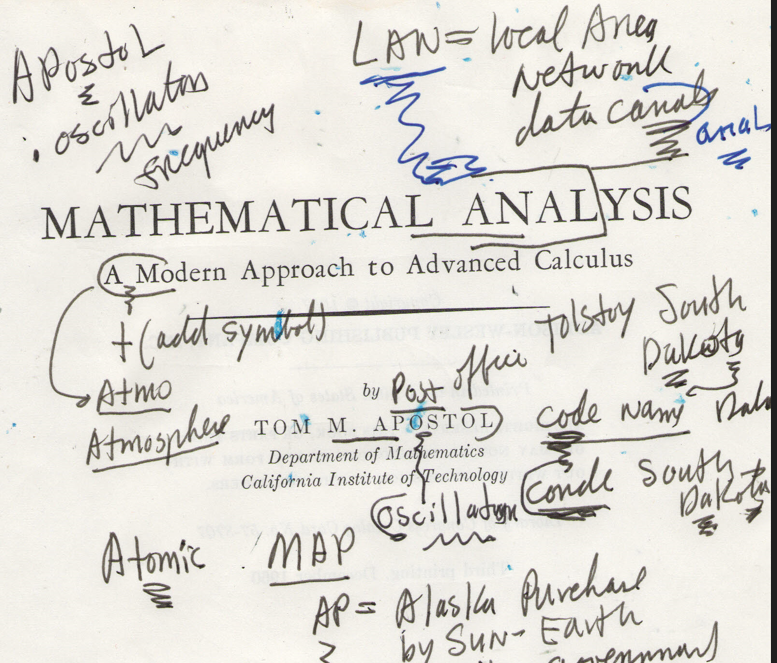 APostol
oscillators
frequency
LAN = local Area
Network
data canals
anal
MATHEMATICAL ANALYSIS
A Modern Approach to Advanced Calculus
+ (add symbol)
Atmo
Atmosphere
Tolstoy South
Dakota
by Post office
TOM M. APOSTOL
code name
Department of Mathematics
California Institute of Technology
Conde South
Dakota
Oscillator
Atomic
MAP
AP = Alaska Purchase
by Sun-Earth
Government